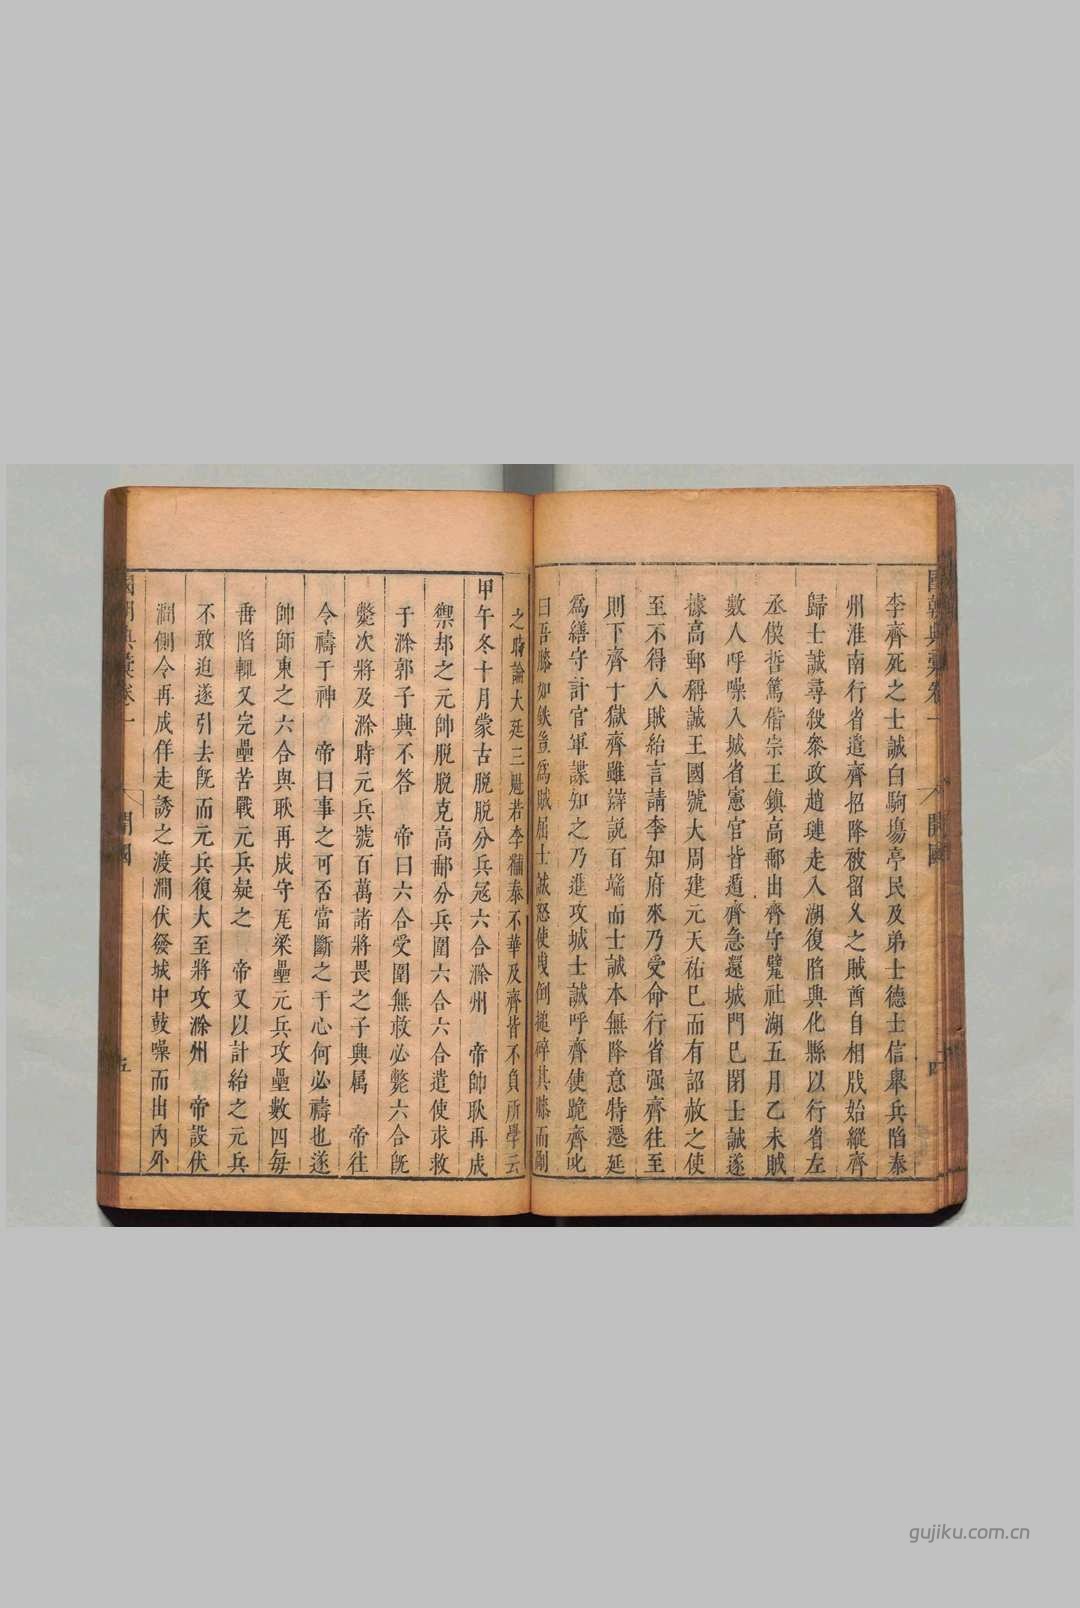 國朝典彙卷一
開國
四
李齊死之士誠白駒塲亭民及弟士德士信舉兵陷泰
州淮南行省遣齊招降被留乂之賊酋自相戕始縱齊
歸士誠尋殺叅政趙璉走入湖復陷興化縣以行省左
丞偰哲篤偕宗王鎮高郵出齊守甓社湖五月乙未賊
數人呼噪入城省憲官皆遁齊急還城門已閉士誠遂
據高郵稱誠王國號大周建元天祐已而有詔赦之使
至不得入賊紿言請李知府來乃受命行省强齊往至
則下齊于獄齊雖辯說百端而士誠本無降意特遷延
爲繕守計官軍諜知之乃進攻城士誠呼齊使跪齊叱
曰吾膝如鉄豈爲賊屈士誠怒使曳倒搥碎其膝而剮
之時論大廷三魁若李黼泰不華及齊皆不負所學云
甲午冬十月蒙古脫脫分兵宼六合滁州 帝帥耿再成
禦却之元帥脫脫克高郵分兵圍六合六合遣使求救
于滁郭子興不答 帝曰六合受圍無救必斃六合旣
斃次將及滁時元兵號百萬諸將畏之子興属 帝往
令禱于神 帝曰事之可否當斷之于心何必禱也遂
帥師東之六合與耿再成守瓦梁壘元兵攻壘數四每
垂陷輒又完壘苦戰元兵疑之 帝又以計紿之元兵
不敢迫遂引去旣而元兵復大至將攻滁州 帝設伏
澗側令再成佯走誘之渡澗伏發城中鼓噪而出內外
國朝典彙卷一
開國
五
gujiku.com.cn